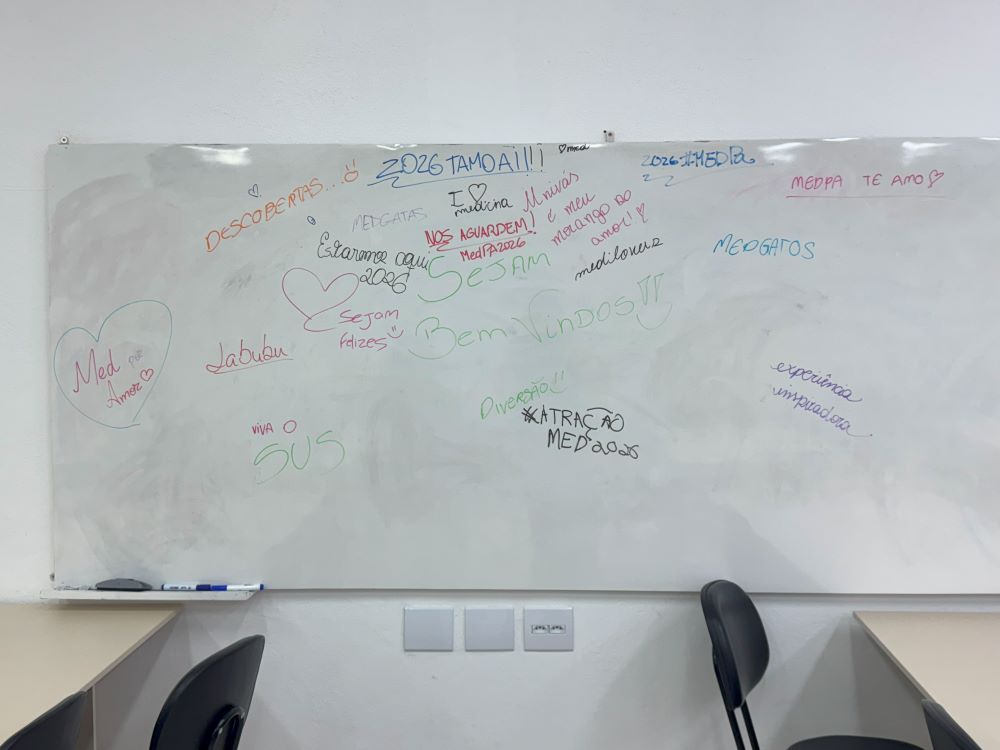 2026 TAMO AÍ!!!
♡ med
2026 #MEDPA
DESCOBERTAS...
MEDPA TE AMO ♡
I ♡
medicina
MEDGATAS
Univás
é meu
morango do
amor! ♡
NOS AGUARDEM!
MedPA2026
Estaremos aqui
2026!
MEDGATOS
SEJAM
Bem Vindos!!
Sejam
felizes
Med por
Amor ♡
Labubu
DIVERSÃO!!
ATRAÇÃO
MED 2026
experiência
inspiradora
VIVA O
SUS